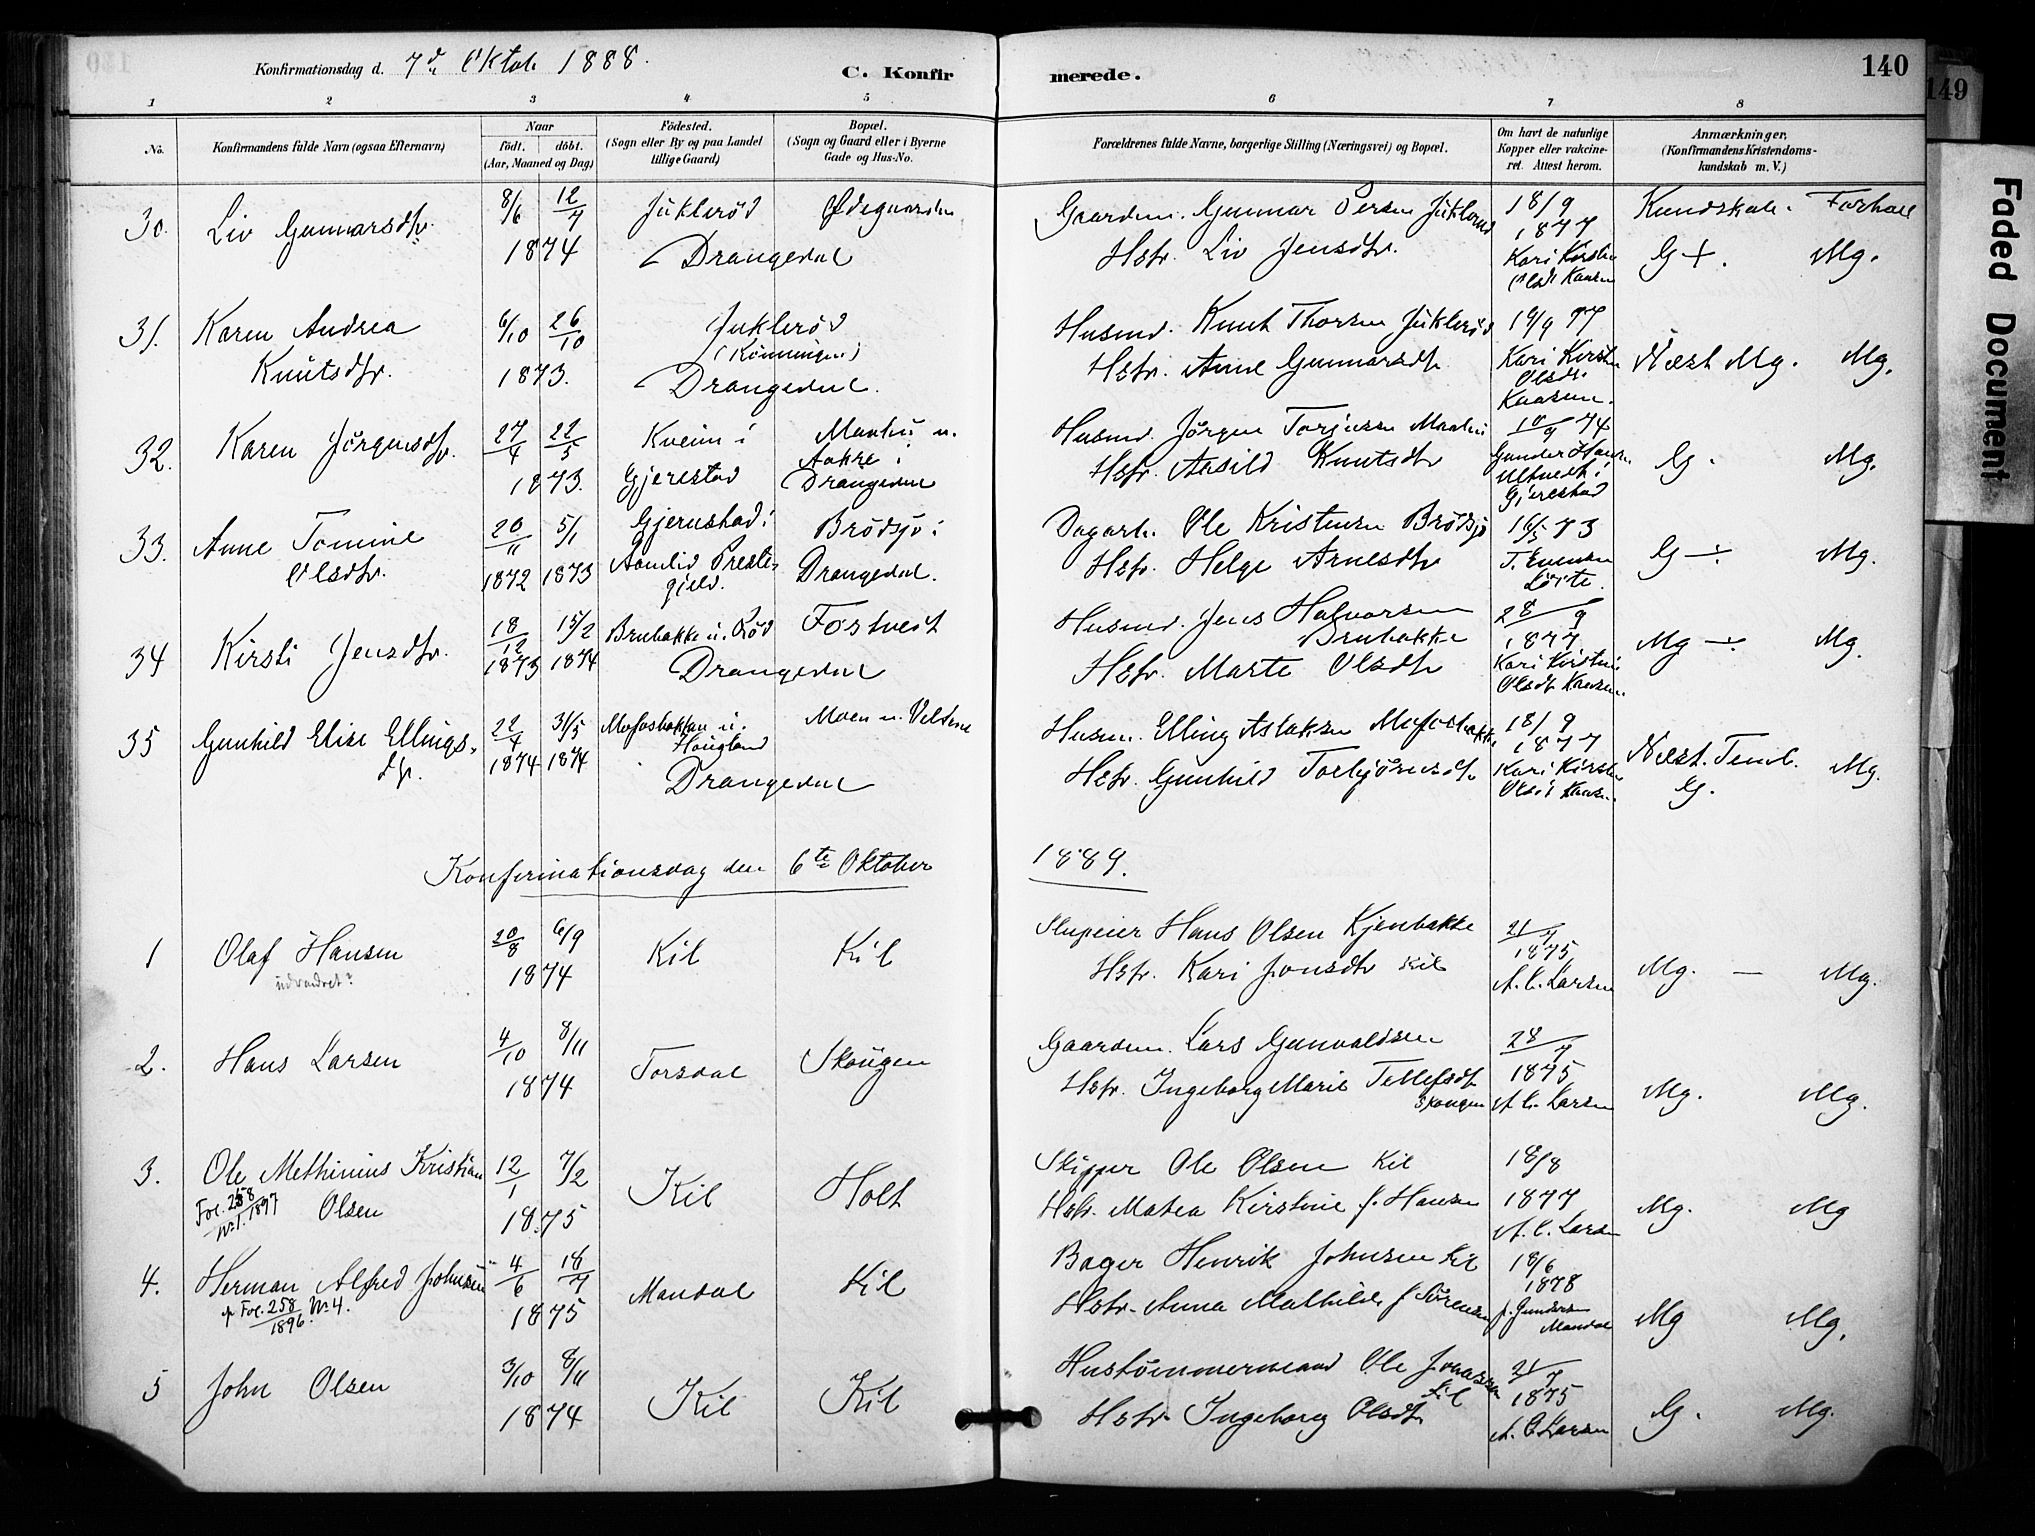 Konfirmationsdag d. 7de Oktob. 1888.
C. Konfirmerede.
140
149
Faded Document
1 2 3 4 5 6 7 8
No.
Konfirmandens fulde Navn (ogsaa Efternavn)
Naar
födt. döbt.
(Aar, Maaned og Dag)
Födested.
(Sogn eller By og paa Landet
tillige Gaard)
Bopæl.
(Sogn og Gaard eller i Byerne
Gade og Hus-No.
Forældrenes fulde Navne, borgerlige Stilling (Næringsvei) og Bopæl.
Om havt de naturlige
Kopper eller vakcine-
ret. Attest herom.
Anmærkninger,
(Konfirmandens Kristendoms-
kundskab m. V.)
Kundskab. Forhold
30. Liv Gunnarsdtr. 8/6 12/7 1874
Juklerød Drangedal
Ødegaarden
Gaardm. Gunnar Persen Juklerød
Hstr. Liv Jensdtr.
18/9 1877
Kari Kirstine
Olsdt Kaasen
G +. Mg.
31. Karen Andrea
Knutsdtr.
6/10 26/10 1873.
Juklerød
Drangedal.
Husmd. Knut Thorsen Juklerød
Hstr. Anne Gunnarsdtr
19/9 77
Kari Kirstin
Olsdtr.
Kaasen.
Næst Mg. Mg.
32. Karen Jörgensdtr. 27/4 22/5 1873.
Kveim i
Gjerestad
Aakre i
Drangedal
Husmd. Jörgen Torjusen
Hstr. Aasild Knutsdtr
10/9 74
Gunder
i
Gjerestad
G. Mg.
33. Anne Tomine
Olsdtr.
20/11 1872 5/1 1873
Gjerustad i
Aamlid Preste-
gjeld.
Brödsjö i
Drangedal.
Dagarb. Ole Kristensen Brödsjö
Hstr. Helge Arnesdtr
16/5 73
G ÷ Mg.
34 Kirsti Jensdtr. 18/12 1873 15/2 1874
Brubakke u. Röd
Drangedal
Fostveit
Husmd. Jens Halvorsen
Brubakke
Hstr. Marte Olsdtr
28/9
1877
Kari Kirstine
Olsdtr Kaasen.
Mg ÷ Mg.
35 Gunhild Elise Ellings-
dtr.
22/4 1874 31/5 1874
Mofosbakken u.
Haugland
Drangedal
Moen u. Veltene
Husm. Elling Aslaksen Mofosbakke
Hstr. Gunhild Torbjörnsdtr
18/9
1877
Kari Kirstine
Olsdt Kaasen.
Næst. Temb.
G. Mg.
Konfirmationsdag den 6te Oktober 1889.
1 Olaf Hansen
udvandret?
20/8 6/9 1874
Kil Kil
Hans Olsen Kjenbakke
Hstr. Kari Jonsdtr Kil
21/7
1875
A. C. Larsen
Mg. — Mg.
2. Hans Larsen 4/10 8/11 1874
Torsdal Skougen
Gaardm. Lars Gunvaldsen
Hstr. Ingeborg Marie Tellefsdtr
Skougen
28/7
1875
A. C. Larsen
Mg. Mg.
3. Ole Methinius Kristian
Olsen
Fol. 258
No 1. 1897
12/1 7/2 1875
Kil Holt
Skipper Ole Olsen Kil
Hstr. Matea Kirstine f. Hansen
18/8
1877
A. C. Larsen
Mg. Mg
4. Herman Alfred Johnsen
Fol. 258 No 4.
1896.
4/6 18/7 1875
Mandal Kil
Bager Henrik Johnsen Kil
Hstr. Anna Mathilde f Sörensen
18/6
1878
J. Gundersen
Mandal
Mg Mg.
5 John Olsen 3/10 8/11 1874
Kil Kil
Hustömmermand Ole Jonassen
Kil
Hstr. Ingeborg Olsdtr
21/7
1875
A. C Larsen
G. Mg.